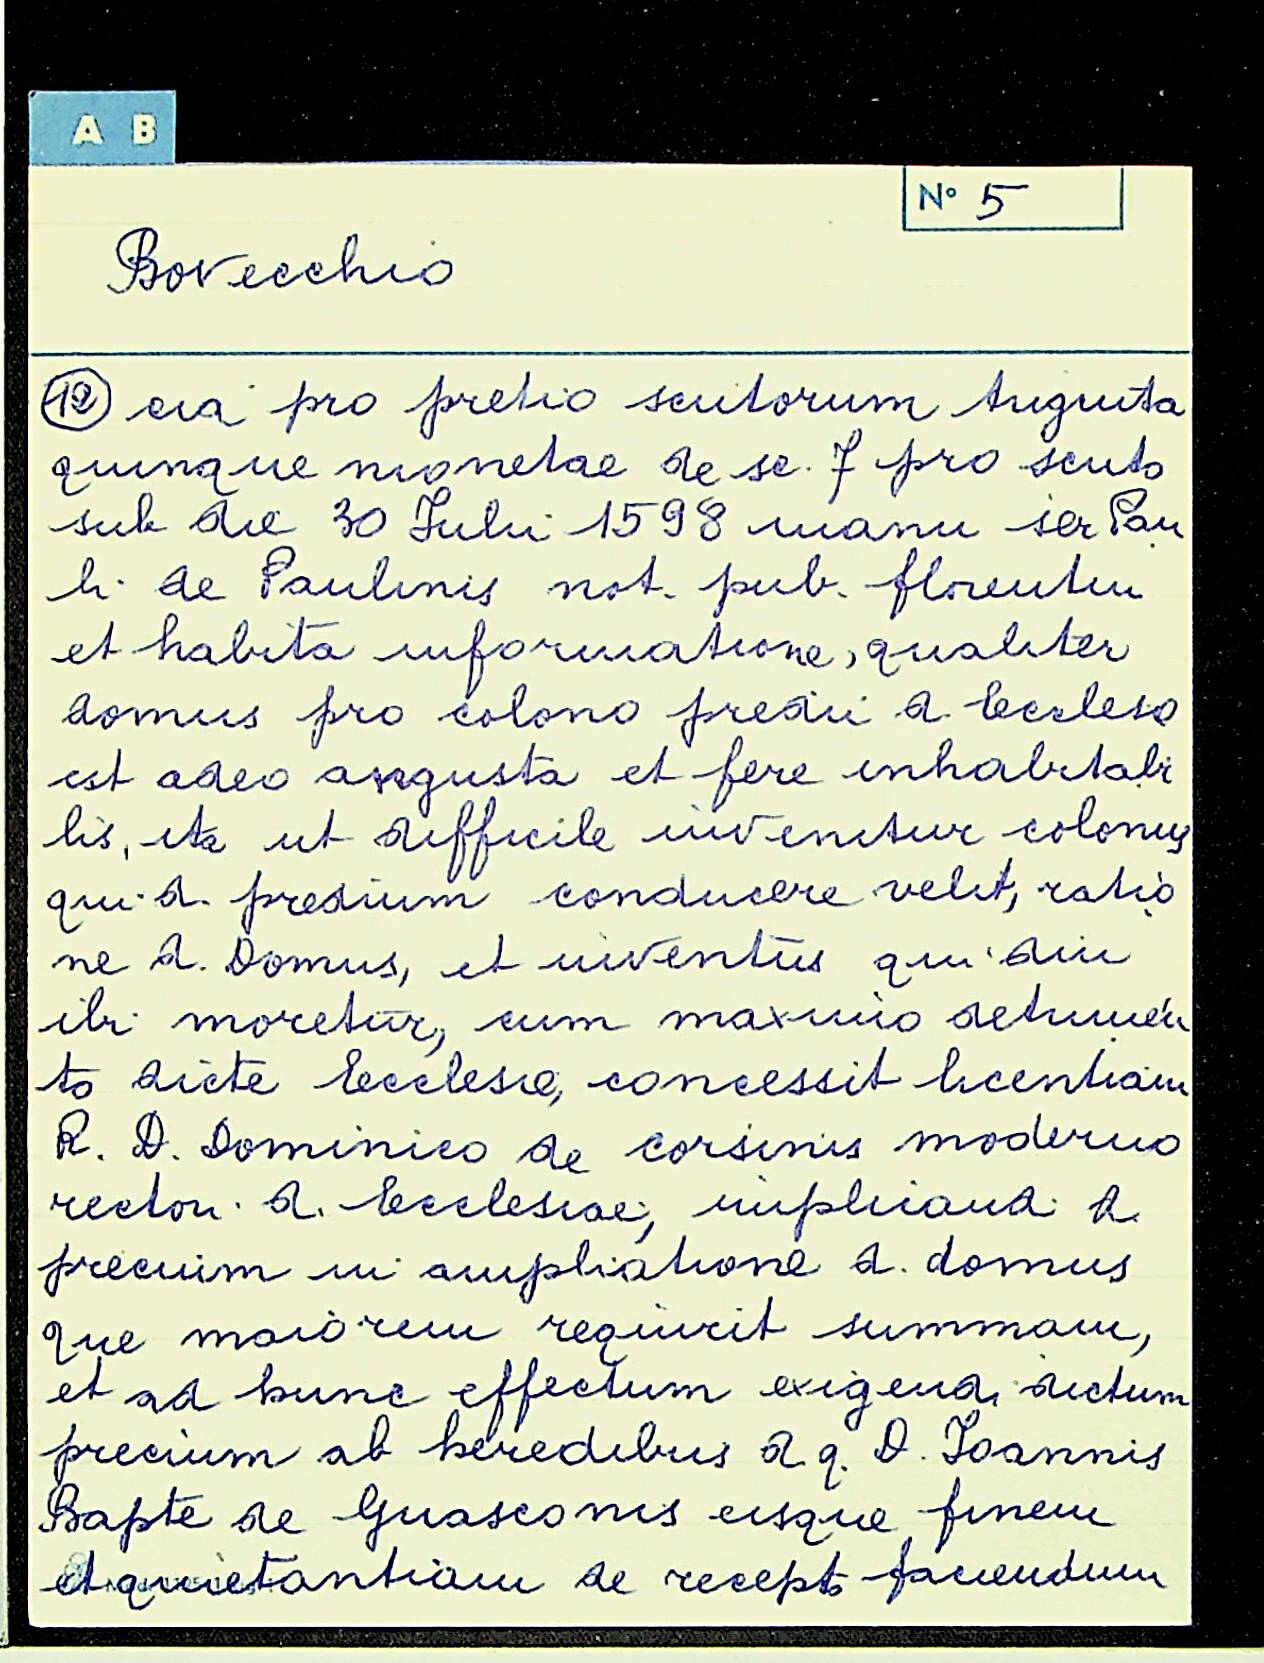 A B
N° 5
Bovecchio
12 cia pro pretio scutorum triginta
quinque monetae de sc. 7 pro scuto
sub die 30 Iulii 1598 manu ser Pau
li de Paulinis not. pub. florentin
et habita informatione, qualiter
domus pro colono predii d. Eccleso
est adeo angusta et fere inhabitabi
lis, ita ut difficile invenitur colonus
qui d. predium conducere velit, ratio
ne d. Domus, et inventus qui diu
ibi moretur, cum maximo detrimen
to dicte Ecclesie, concessit licentiam
R. D. Dominico de corsinis moderno
rectori d. Ecclesiae, implicandi d.
precium in ampliatione d. domus
que maiorem requirit summam,
et ad hunc effectum exigendi dictum
precium ab heredibus d. q. D. Ioannis
Bapte de Guasconis eisque finem
et quietantiam de recepto faciendum